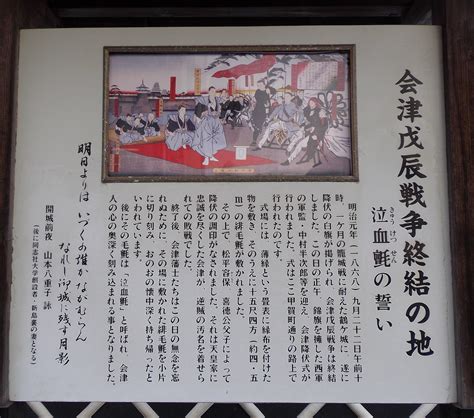 会津戊辰戦争終結の地
泣血氈の誓い
きゅうけつせん
明治元年(一八六八)九月二十二日午前十
時、一ケ月の籠城戦に耐えた鶴ケ城に、遂に
降伏の白旗が掲げられ、会津戊辰戦争は終結
しました。この日の正午、錦旗を擁した西軍
の軍監・中村半次郎等を迎え、会津降伏式が
行われました。式はここ甲賀町通りの路上で
行われたのです。
式場には、薄縁という畳表に縁布を付けた
物を敷き、その上に十五尺四方(約四・五
m)の緋毛氈が敷かれました。
その上で、松平容保、喜徳公父子によって
降伏の調印がなされました。それは天皇家に
忠誠を尽くした会津が、逆賊の汚名を着せら
れての敗戦でした。
終了後、会津藩士たちはこの日の無念を忘
れぬために、その場に敷かれた緋毛氈を小片
に切り刻み、おのおの懐中深く持ち帰ったと
いわれています。
後にその毛氈は、「泣血氈」と呼ばれ、会津
人の心の奥深くに刻み込まれる事となりました。
明日よりは いづくの誰か ながむらん
なれし御城に 残す月影
開城前夜 山本八重子 詠
(後に同志社大学創設者・新島襄の妻となる)